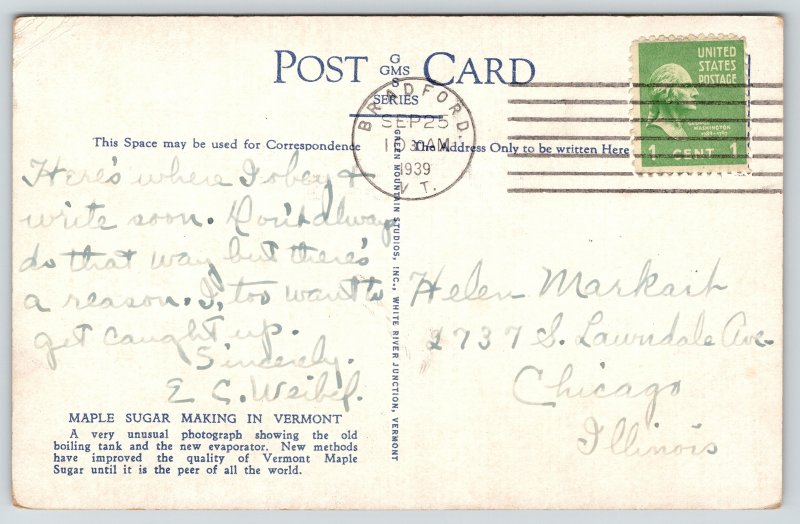 POST CARD
G
GMS
S
SERIES
UNITED
STATES
POSTAGE
WASHINGTON
1 CENT 1
BRADFORD.
SEP 25
30 AM
1939
VT.
This Space may be used for Correspondence
The Address Only to be written Here
Here's where I obey &
write soon. Don't always
do that way but there's
a reason. I, too want to
get caught up.
Sincerely.
E C. Weibel.
GREEN MOUNTAIN STUDIOS, INC., WHITE RIVER JUNCTION, VERMONT
Helen Markart
2737 S. Lawndale Ave.
Chicago
Illinois
MAPLE SUGAR MAKING IN VERMONT
A very unusual photograph showing the old
boiling tank and the new evaporator. New methods
have improved the quality of Vermont Maple
Sugar until it is the peer of all the world.